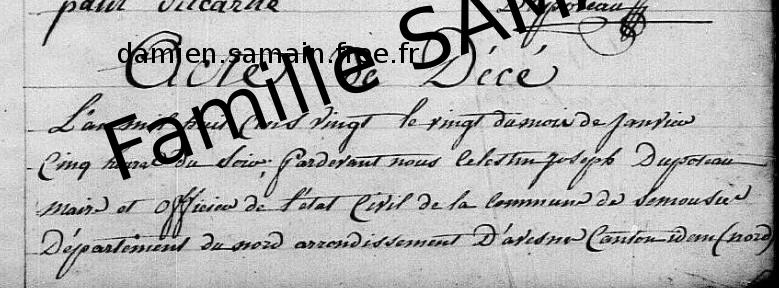 paul
Duposeau
damien.samain.free.fr
Famille SAM
Actes de Décé
L'an mil huit Cens vingt le vingt du mois de janvier
Cinq heures du Soir; Pardevant nous Celestin joseph Duposeau
maire et officier de l'état Civil de la Commune de Semousier
Département du nord arrondissement D'avesne Canton idem (nord)